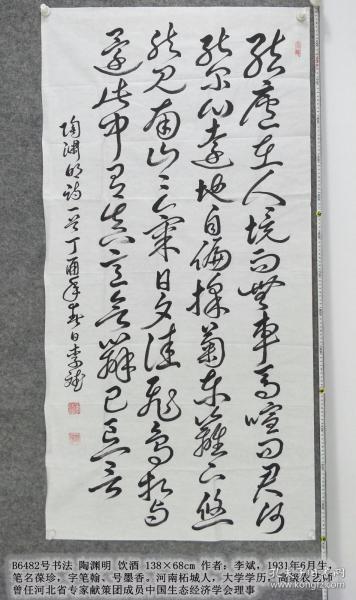 结廬在人境而無車馬喧问君何
能尔心遠地自偏採菊东籬下悠
然见南山山氣日夕佳飛鳥相与
還此中有真意欲辨已忘言
陶渊明诗一首丁酉年春日李斌
B6482号书法 陶渊明 饮酒 138×68cm 作者：李斌，1931年6月生，
笔名葆珍，字笔翰、号墨香。河南柘城人，大学学历，高级农艺师
曾任河北省专家献策团成员中国生态经济学会理事